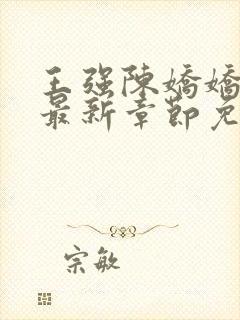 王强陈娇娇
最新章节免
宗敏